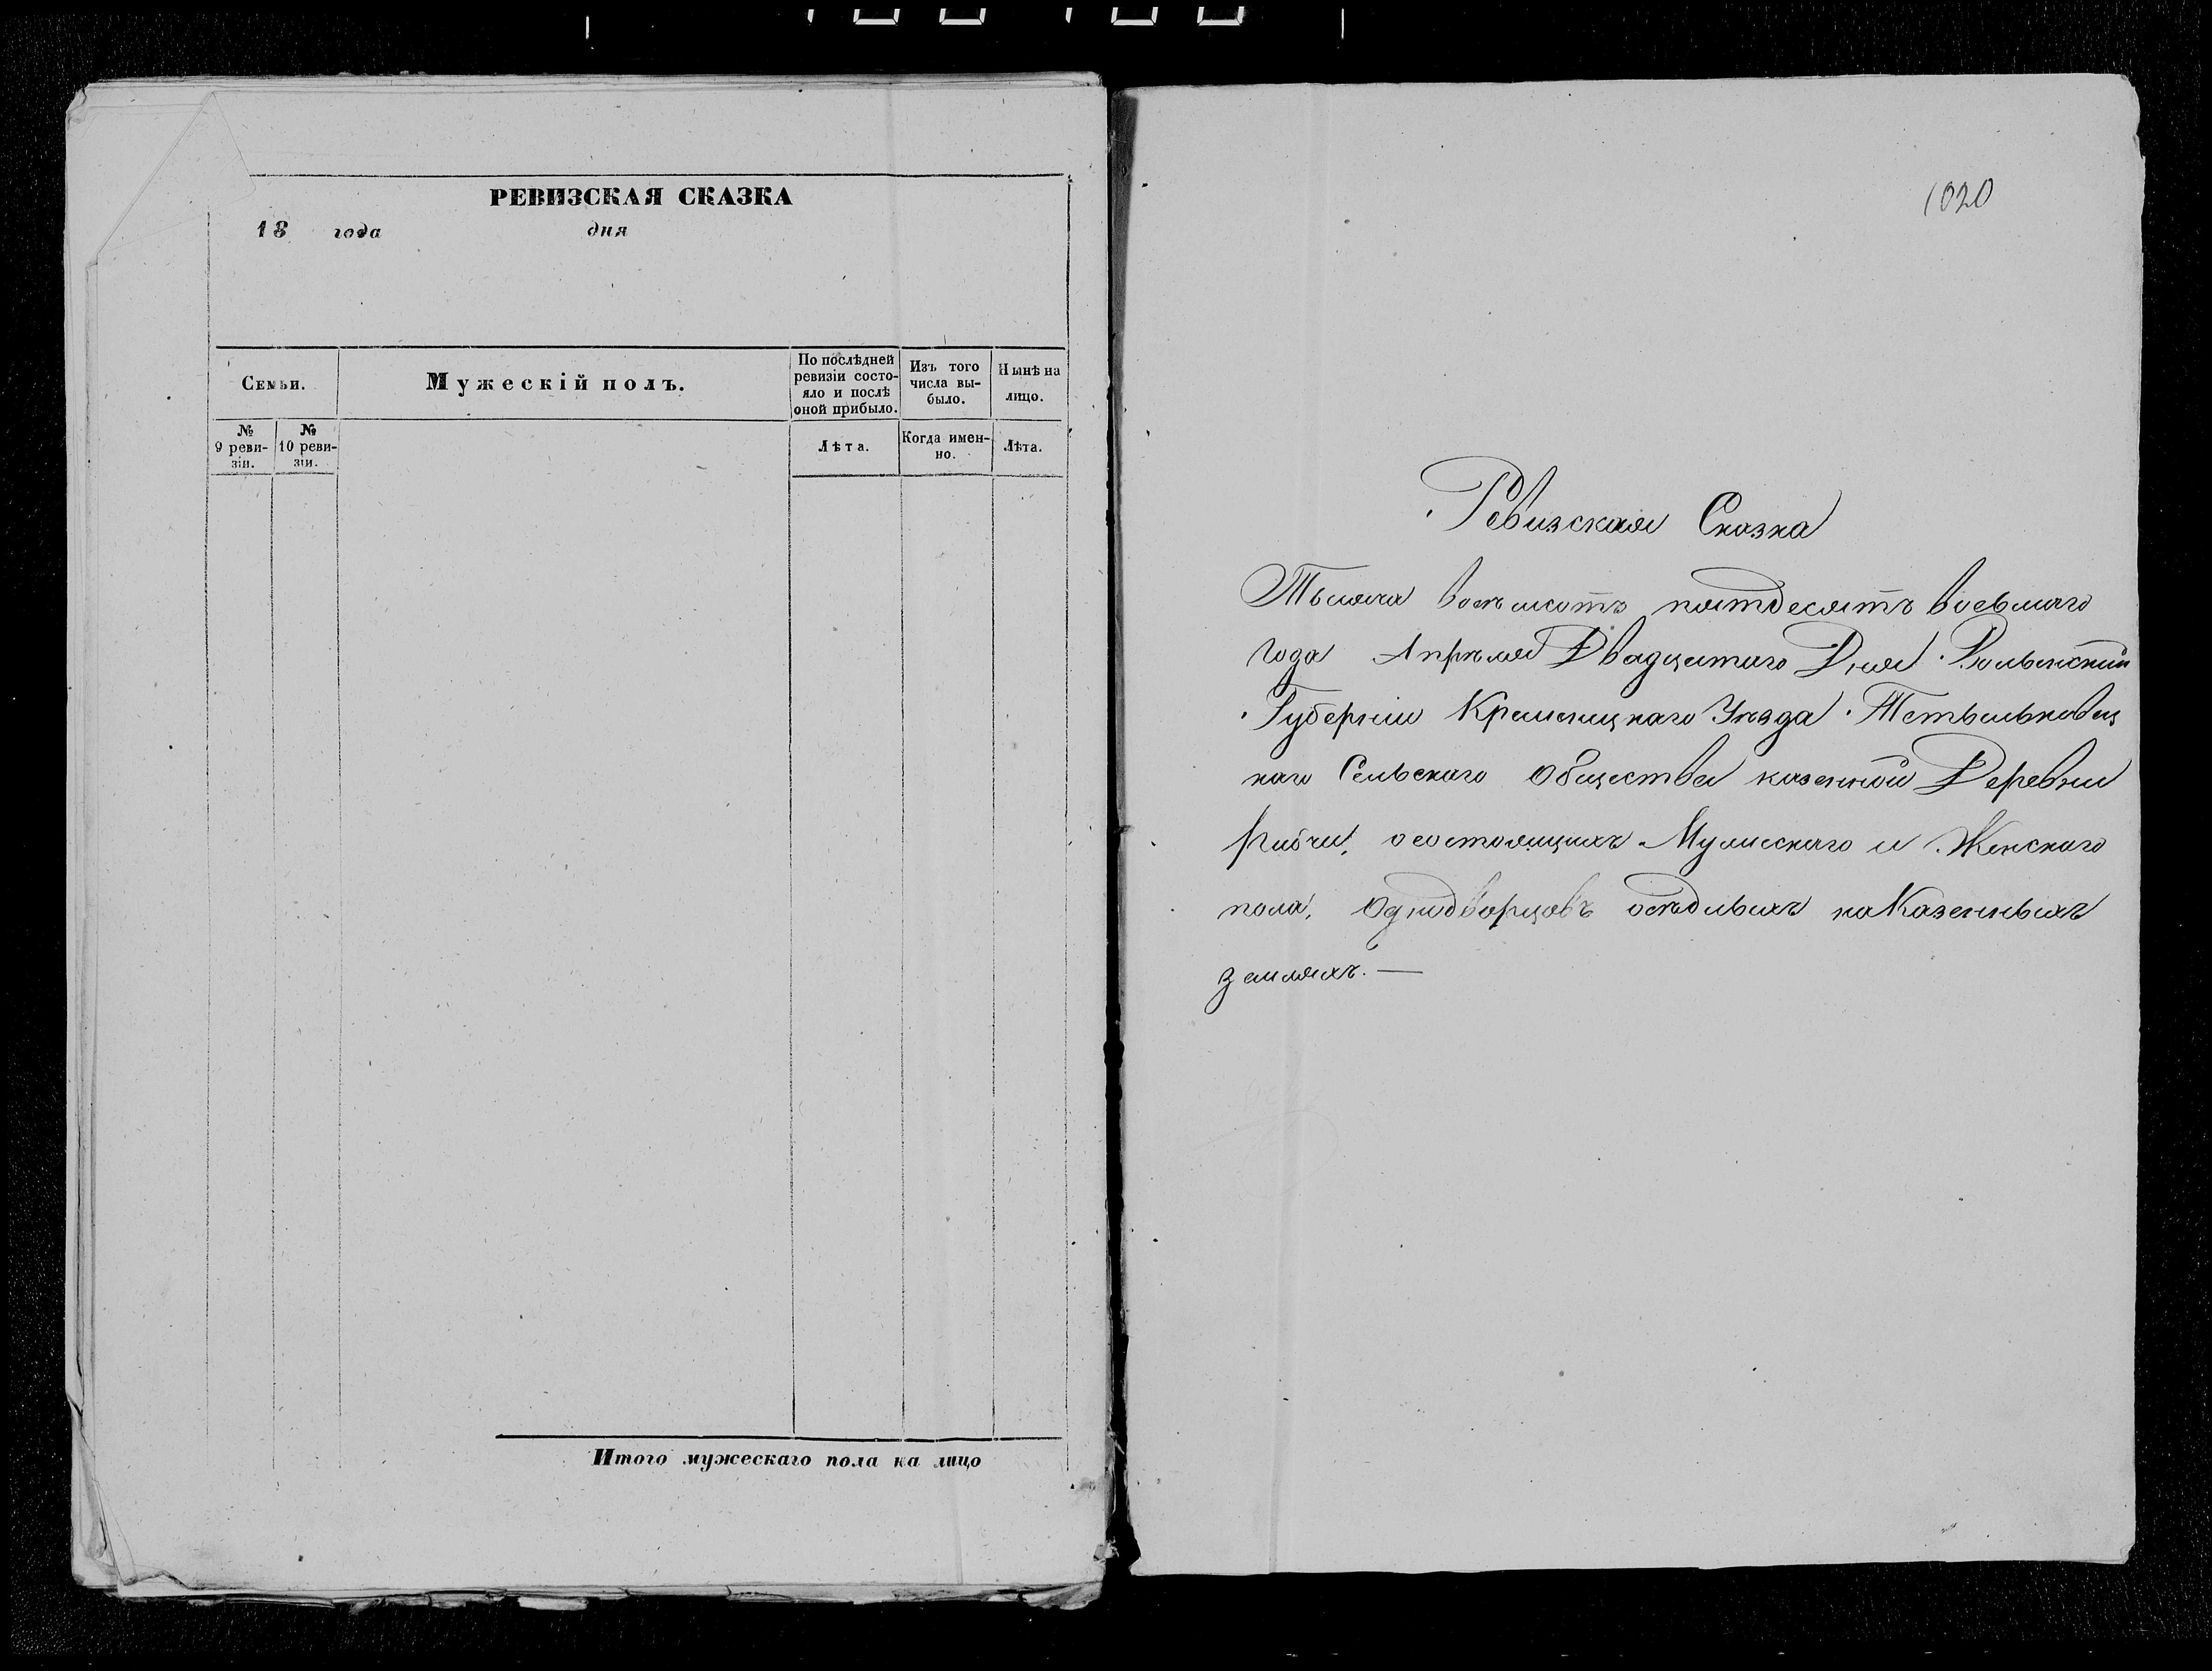 РЕВИЗСКАЯ СКАЗКА
18 года дня
Семьи.
Мужескій полъ.
По послѣдней
ревизіи состо-
яло и послѣ
оной прибыло.
Изъ того
числа вы-
было.
Нынѣ на
лицо.
№
9 реви-
зіи.
№
10 реви-
зіи.
Лѣта.
Когда имен-
но.
Лѣта.
Итого мужескаго пола на лицо
1020
Ревизская Сказка
Тысяча восемсотъ пятдесятъ восьмаго
года Апрѣля Двадцатаго Дня Волынский
Губерніи Кременецкаго Уѣзда
каго Сельскаго Общества казенной Деревни
состоящихъ Мужескаго и Женскаго
пола, Однодворцовъ осѣдлыхъ на Казенныхъ
земляхъ. —